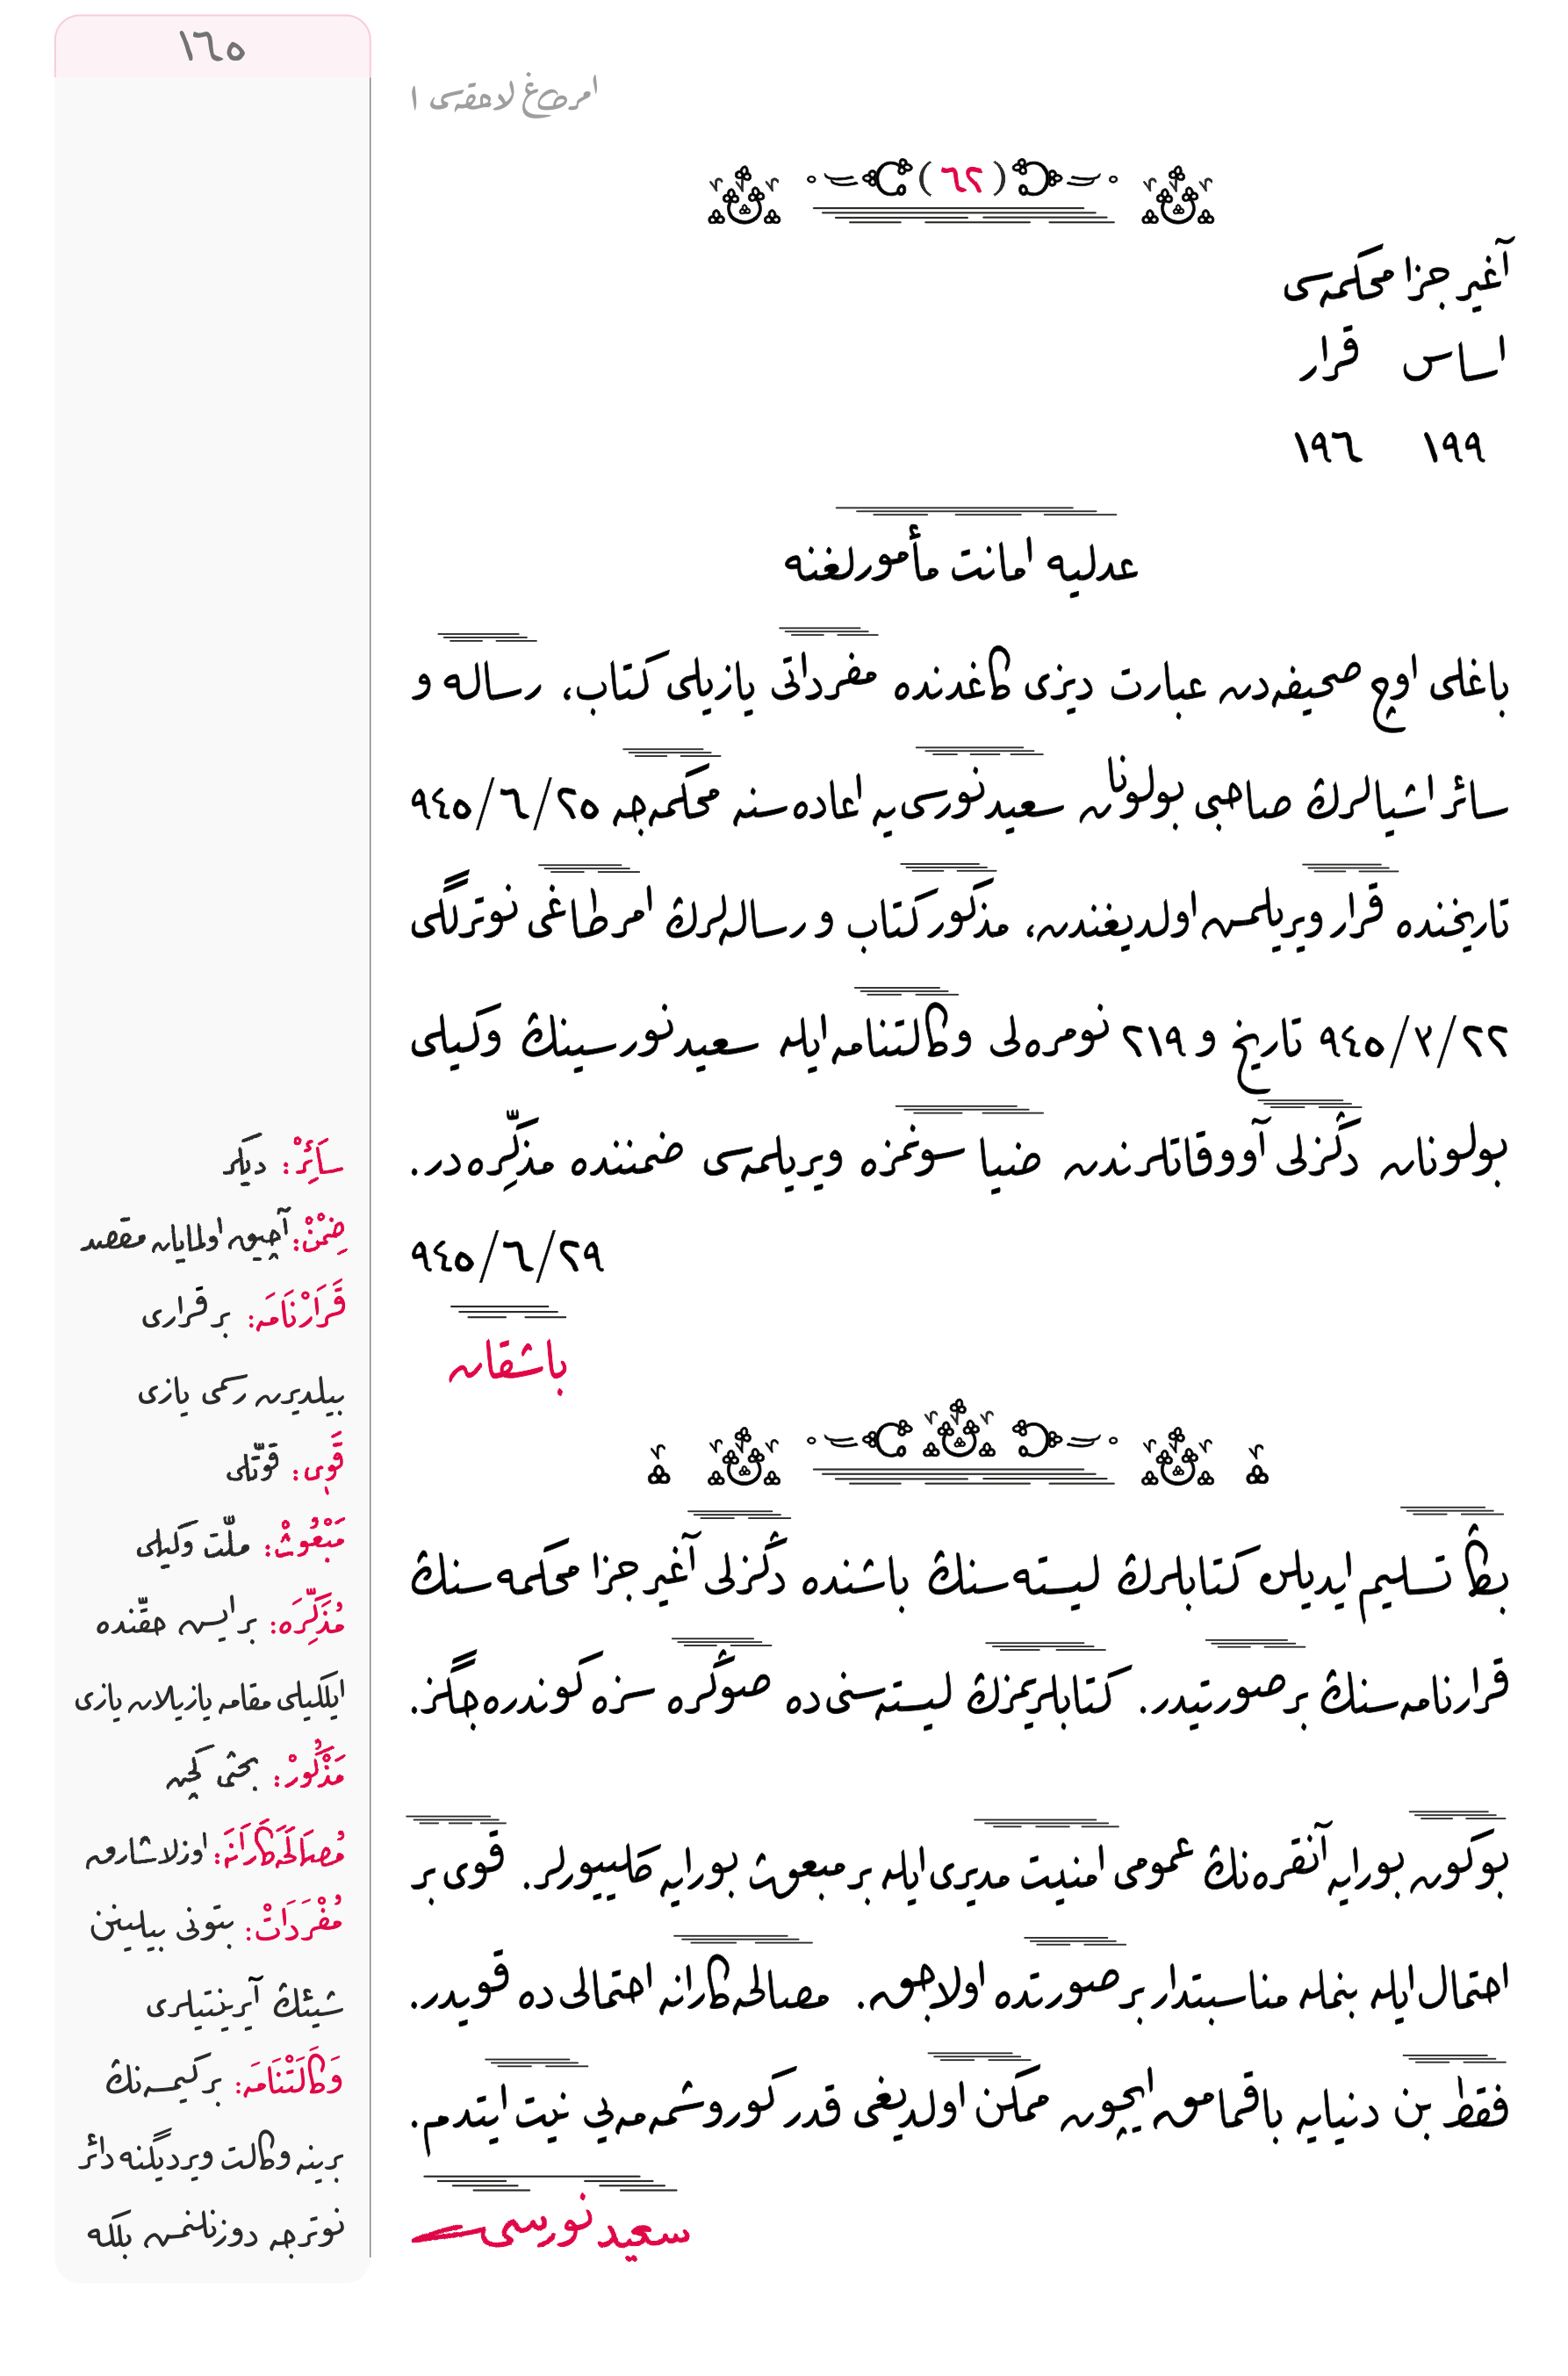 ١٦٥
امرطاغ لاحقه‌سی ١
(٦٢)
آغیر جزا محكمه‌سی
اساس قرار
١٩٩ ١٩٦
عدلیه امانت مأمورلغنه
باغلی اوچ صحیفه‌دن عبارت دیزی كاغدنده مفرداتی یازیلی كتاب، رساله و
سائر اشیالرڭ صاحبی بولونان سعید نورسی‌یه اعاده‌سنه محكمه‌جه ٢٥/٦/٩٤٥
تاریخنده قرار ویریلمش اولدیغندن، مذكور كتاب و رساله‌لرڭ امرطاغی نوترلگی
٢٢/٣/٩٤٥ تاریخ و ٢١٩ نومره‌لی وكالتنامه ایله سعید نورسینڭ وكیلی
بولونان دڭزلی آووقاتلرندن ضیا سونمزه ویریلمه‌سی ضمننده مذكّره‌در.
٢٩/٦/٩٤٥
باشقان
بڭا تسلیم ایدیلن كتابلرڭ لیسته‌سنڭ باشنده دڭزلی آغیر جزا محكمه‌سنڭ
قرارنامه‌سنڭ بر صورتیدر. كتابلریمزڭ لیسته‌سنی ده صوڭره سزه كوندره‌جگز.
بوكون بورایه آنقره‌نڭ عمومی امنیت مدیری ایله بر مبعوث بورایه كلییورلر. قوی بر
احتمال ایله بنمله مناسبتدار بر صورتده اولاجق. مصالحه‌كارانه احتمالی ده قویدر.
فقط بن دنیایه باقمامق ایچون ممكن اولدیغی قدر كوروشمه‌مه‌یی نیت ایتدم.
سعید نورسی
سَائِرْ: دیگر
ضِمْنْ: آچیق اولمایان مقصد
قَرَارْنَامَه: بر قراری
بیلدیرن رسمی یازی
قَوِی: قوّتلی
مَبْعُوثْ: ملّت وكیلی
مُذَكِّرَه: بر ایش حقّنده
ایلگیلی مقامه یازیلان یازی
مَذْكُورْ: بحثی كچن
مُصَالَحَه‌كَارَانَه: اوزلاشارق
مُفْرَدَاتْ: بتونی بیلینن
شیئڭ آیرینتیلری
وَكَالَتْنَامَه: بر كیمسه‌نڭ
برینه وكالت ویردیگنه دائر
نوترجه دوزنلنمش بلگه